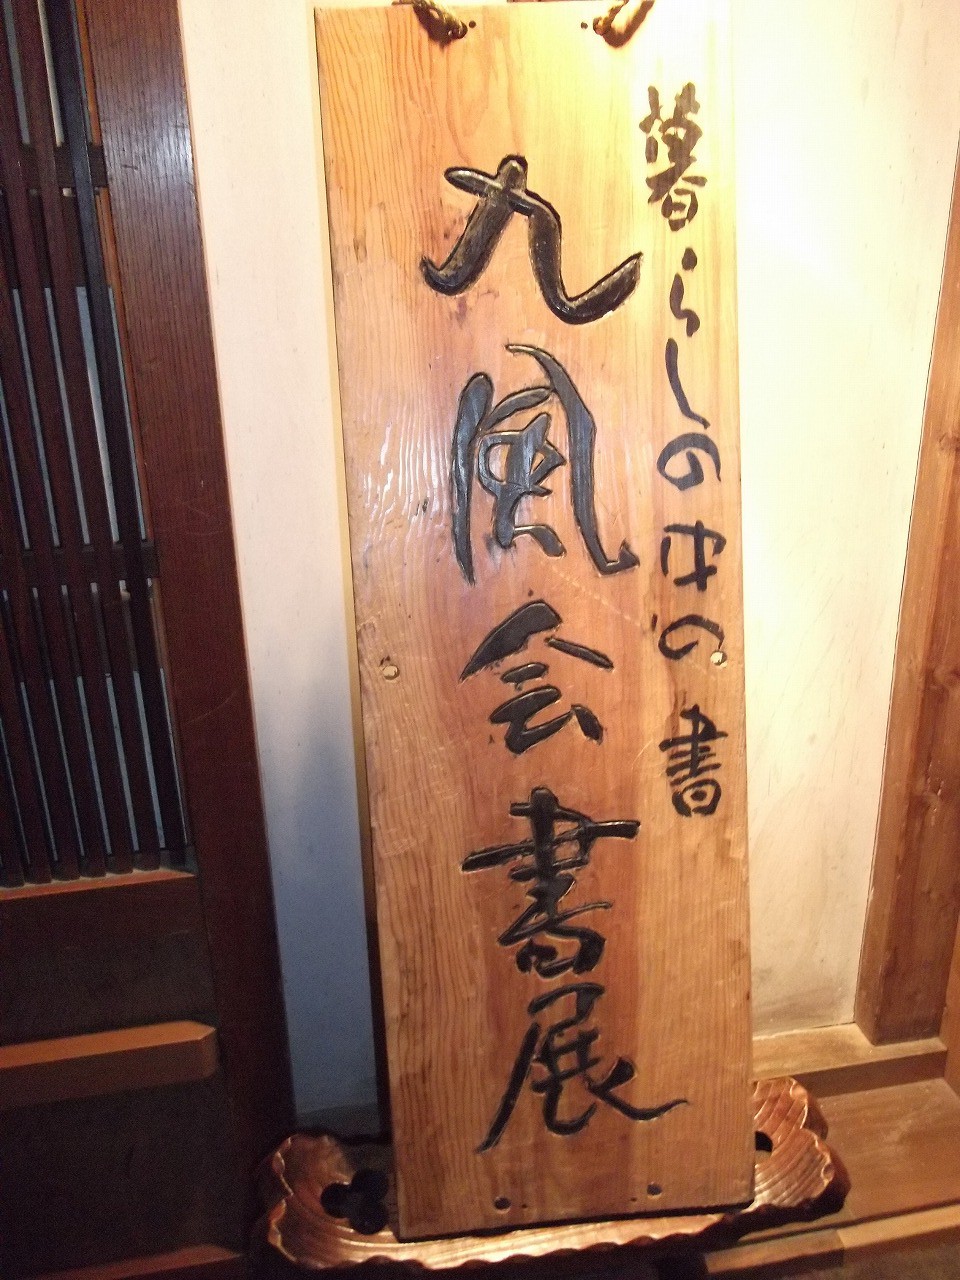 暮らしの中の書
九風会書展